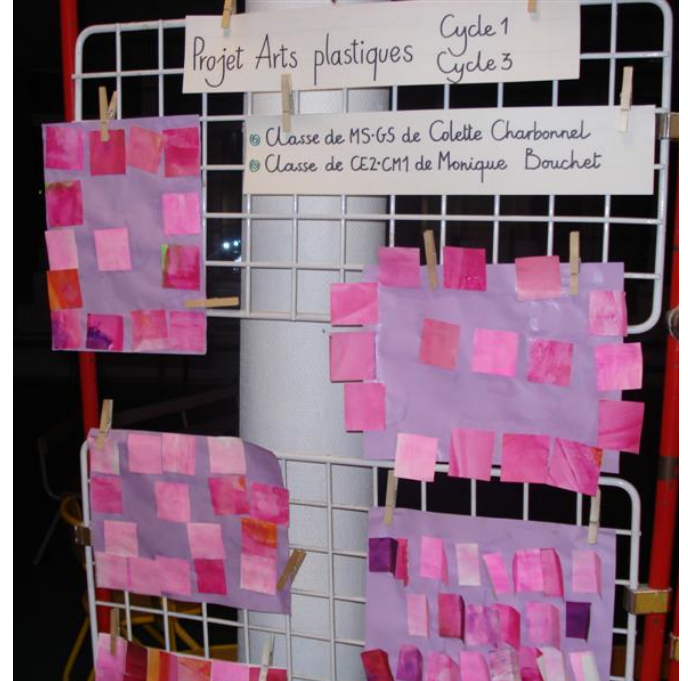 Projet Arts plastiques Cycle 1
Cycle 3
Classe de MS-GS de Colette Charbonnel
Classe de CE2-CM1 de Monique Bouchet